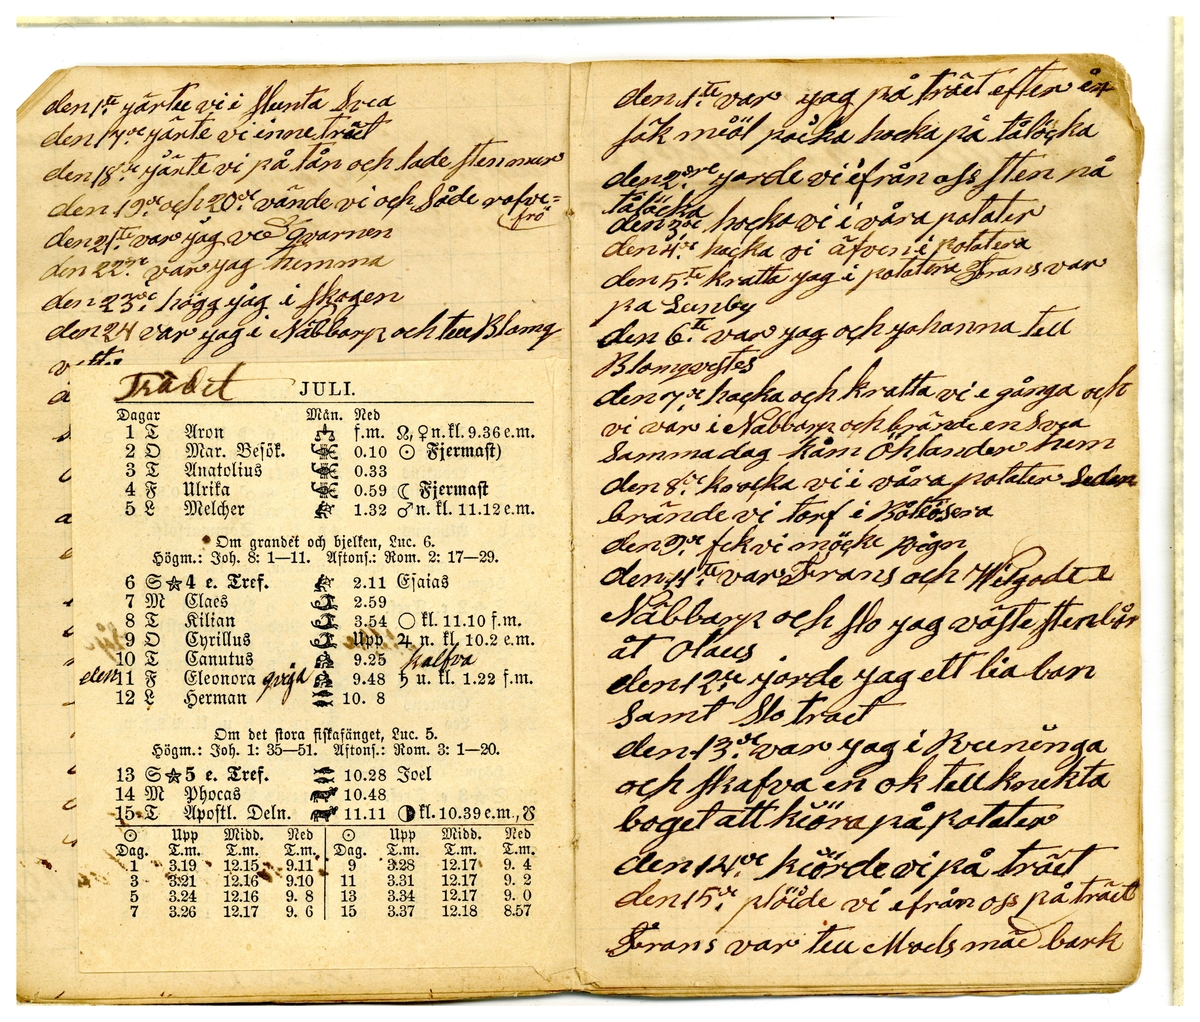 den 1te yärte vi i slunta Svea
den 17de yärte vi inne trät
den 18de yänte vi på tån och lade sten mur
den 19de och 20de vände vi och Såde rofve=
frö
den 21te var yag ve Qvarnen
den 22ne var yag hemma
den 23de högg yåg i skogen
den 24 var yag i Näbbarp och tell Blomq
Trädet JULI.
Dagar Mån. Ned
1 T Aron f.m. ☊, ♀ n. kl. 9.36 e.m.
2 O Mar. Besök. 0.10 ☉ Fjermast)
3 T Anatolius 0.33
4 F Ulrika 0.59 ☾ Fjermast
5 L Melcher 1.32 ♂ n. kl. 11.12 e.m.
Om grandet och bjelken, Luc. 6.
Högm.: Joh. 8: 1—11. Aftons.: Rom. 2: 17—29.
6 S ★ 4 e. Tref. 2.11 Esaias
7 M Claes 2.59
8 T Kilian 3.54 ○ kl. 11.10 f.m.
9 O Cyrillus Upp ♃ n. kl. 10.2 e.m.
10 T Canutus 9.25 kalfva
den 11 F Eleonora qviga 9.48 ♄ u. kl. 1.22 f.m.
12 L Herman 10. 8
Om det stora fiskafänget, Luc. 5.
Högm.: Joh. 1: 35—51. Aftons.: Rom. 3: 1—20.
13 S ★ 5 e. Tref. 10.28 Joel
14 M Phocas 10.48
15 T Apostl. Deln. 11.11 ◑ kl. 10.39 e.m., ☋
☉ Upp Midd. Ned ☉ Upp Midd. Ned
Dag. T.m. T.m. T.m. Dag. T.m. T.m. T.m.
1 3.19 12.15 9.11 9 3.28 12.17 9. 4
3 3.21 12.16 9.10 11 3.31 12.17 9. 2
5 3.24 12.16 9. 8 13 3.34 12.17 9. 0
7 3.26 12.17 9. 6 15 3.37 12.18 8.57
den 1te var yag på trät efter en
säk miöl påcka hacka på tålöcka
den 2dre yorde vi ifrån oss sten på
tålöcka
den 3de hocka vi i våra potater
den 4de hacka vi äfven i potatera
den 5te kratta yag i potatera Frans var
pa Lunby
den 6te var yag och yohanna tell
Blomqvistes
den 7de hacka och kratta vi e gånga och
vi var i Näbbarp och brände en Svea
Samma dag kåm Öhlander hem
den 8de hocka vi i våra potater Sedan
brände vi torf i
den 9de fek vi möcke
den 11te var Frans och i
Näbbarp och slo yag väste
åt Olaus
den 12te yorde yag ett lia ban
Samt slo träet
den 13de var yag i Bruninga
och skafva en ok tell krukta
boget att kiöra på potater
den 14de kiörde vi på trät
den 15de plöide vi efrån oss på trät
Frans var tell Moels mäe bark